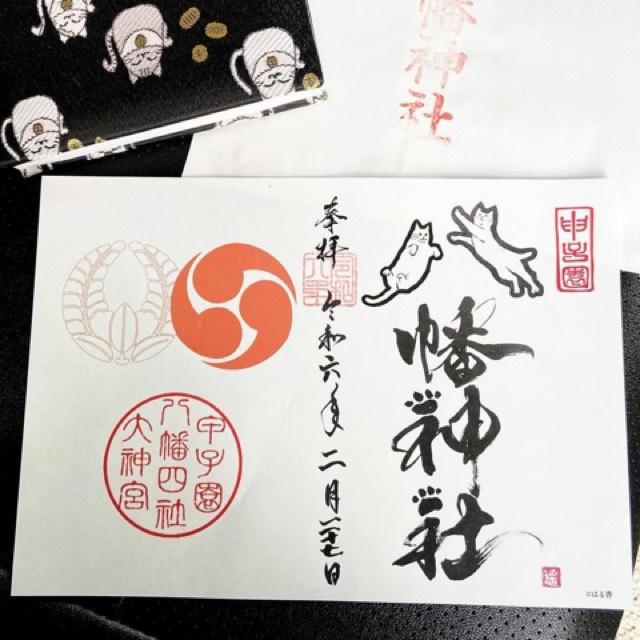 幡神社
甲子園
幡神社
奉拝 令和六年二月 日
甲子園
八幡四社
大神宮
©はる香